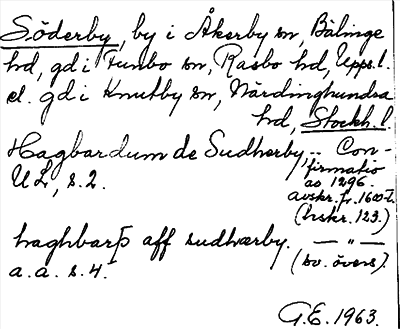 Söderby, by i Åkerby sn, Bälinge
hd, gd i Funbo sn, Rasbo hd, Upps. l.
el. gd i Knutby sn, Närdinghundra
hd, Stockh. l.
Hagbardum de Sudherby, .. Con-
firmatio
UL, s. 2.
ao 1296.
avskr. fr. 1600-t.
(hskr. 123.)
haghbarþ aff sudhærby. — " —
a. a. s. 4.
(sv. övers.)
G.E. 1963.